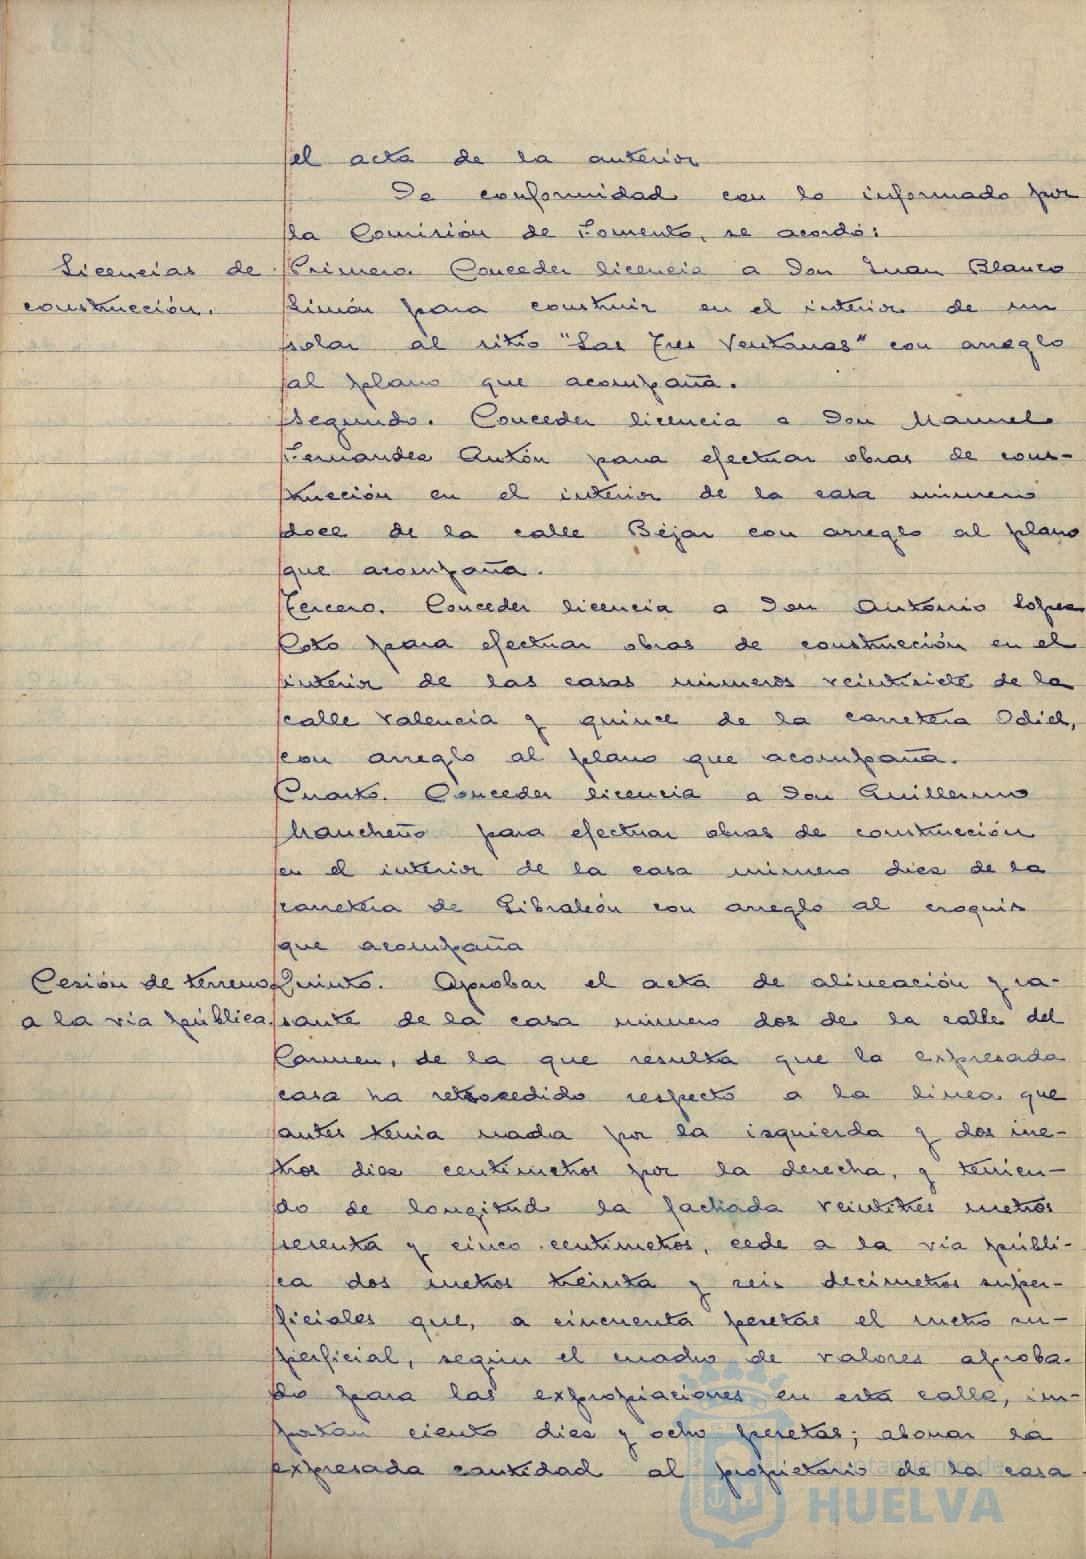 el acta de la anterior
De conformidad con lo informado por
la Comisión de Fomento, se acordó:
Licencias de
construcción.
Primero. Conceder licencia a Don Juan Blanco
Simón para construir en el interior de un
solar al sitio "Las Tres Ventanas" con arreglo
al plano que acompaña.
Segundo. Conceder licencia a Don Manuel
Fernandez Antón para efectuar obras de cons-
trucción en el interior de la casa número
doce de la calle Béjar con arreglo al plano
que acompaña.
Tercero. Conceder licencia a Don Antonio Lopez
Coto para efectuar obras de construcción en el
interior de las casas números veintisiete de la
calle Valencia y quince de la carretera Odiel,
con arreglo al plano que acompaña.
Cuarto. Conceder licencia a Don Guillermo
Mancheño para efectuar obras de construcción
en el interior de la casa número diez de la
carretera de Gibraleón con arreglo al croquis
que acompaña
Cesión de terreno
a la vía pública.
Quinto. Aprobar el acta de alineación y ra-
sante de la casa número dos de la calle del
Carmen, de la que resulta que la expresada
casa ha retrocedido respecto a la linea que
antes tenia nada por la izquierda y dos me-
tros diez centimetros por la derecha, y tenien-
do de longitud la fachada veintitres metros
sesenta y cinco centimetros, cede a la via públi-
ca dos metros treinta y seis decimetros super-
ficiales que, a cincuenta pesetas el metro su-
perficial, según el cuadro de valores aproba-
do para las expropiaciones en esta calle, im-
portan ciento diez y ocho pesetas; abonar la
expresada cantidad al propietario de la casa
Ayuntamiento de
HUELVA